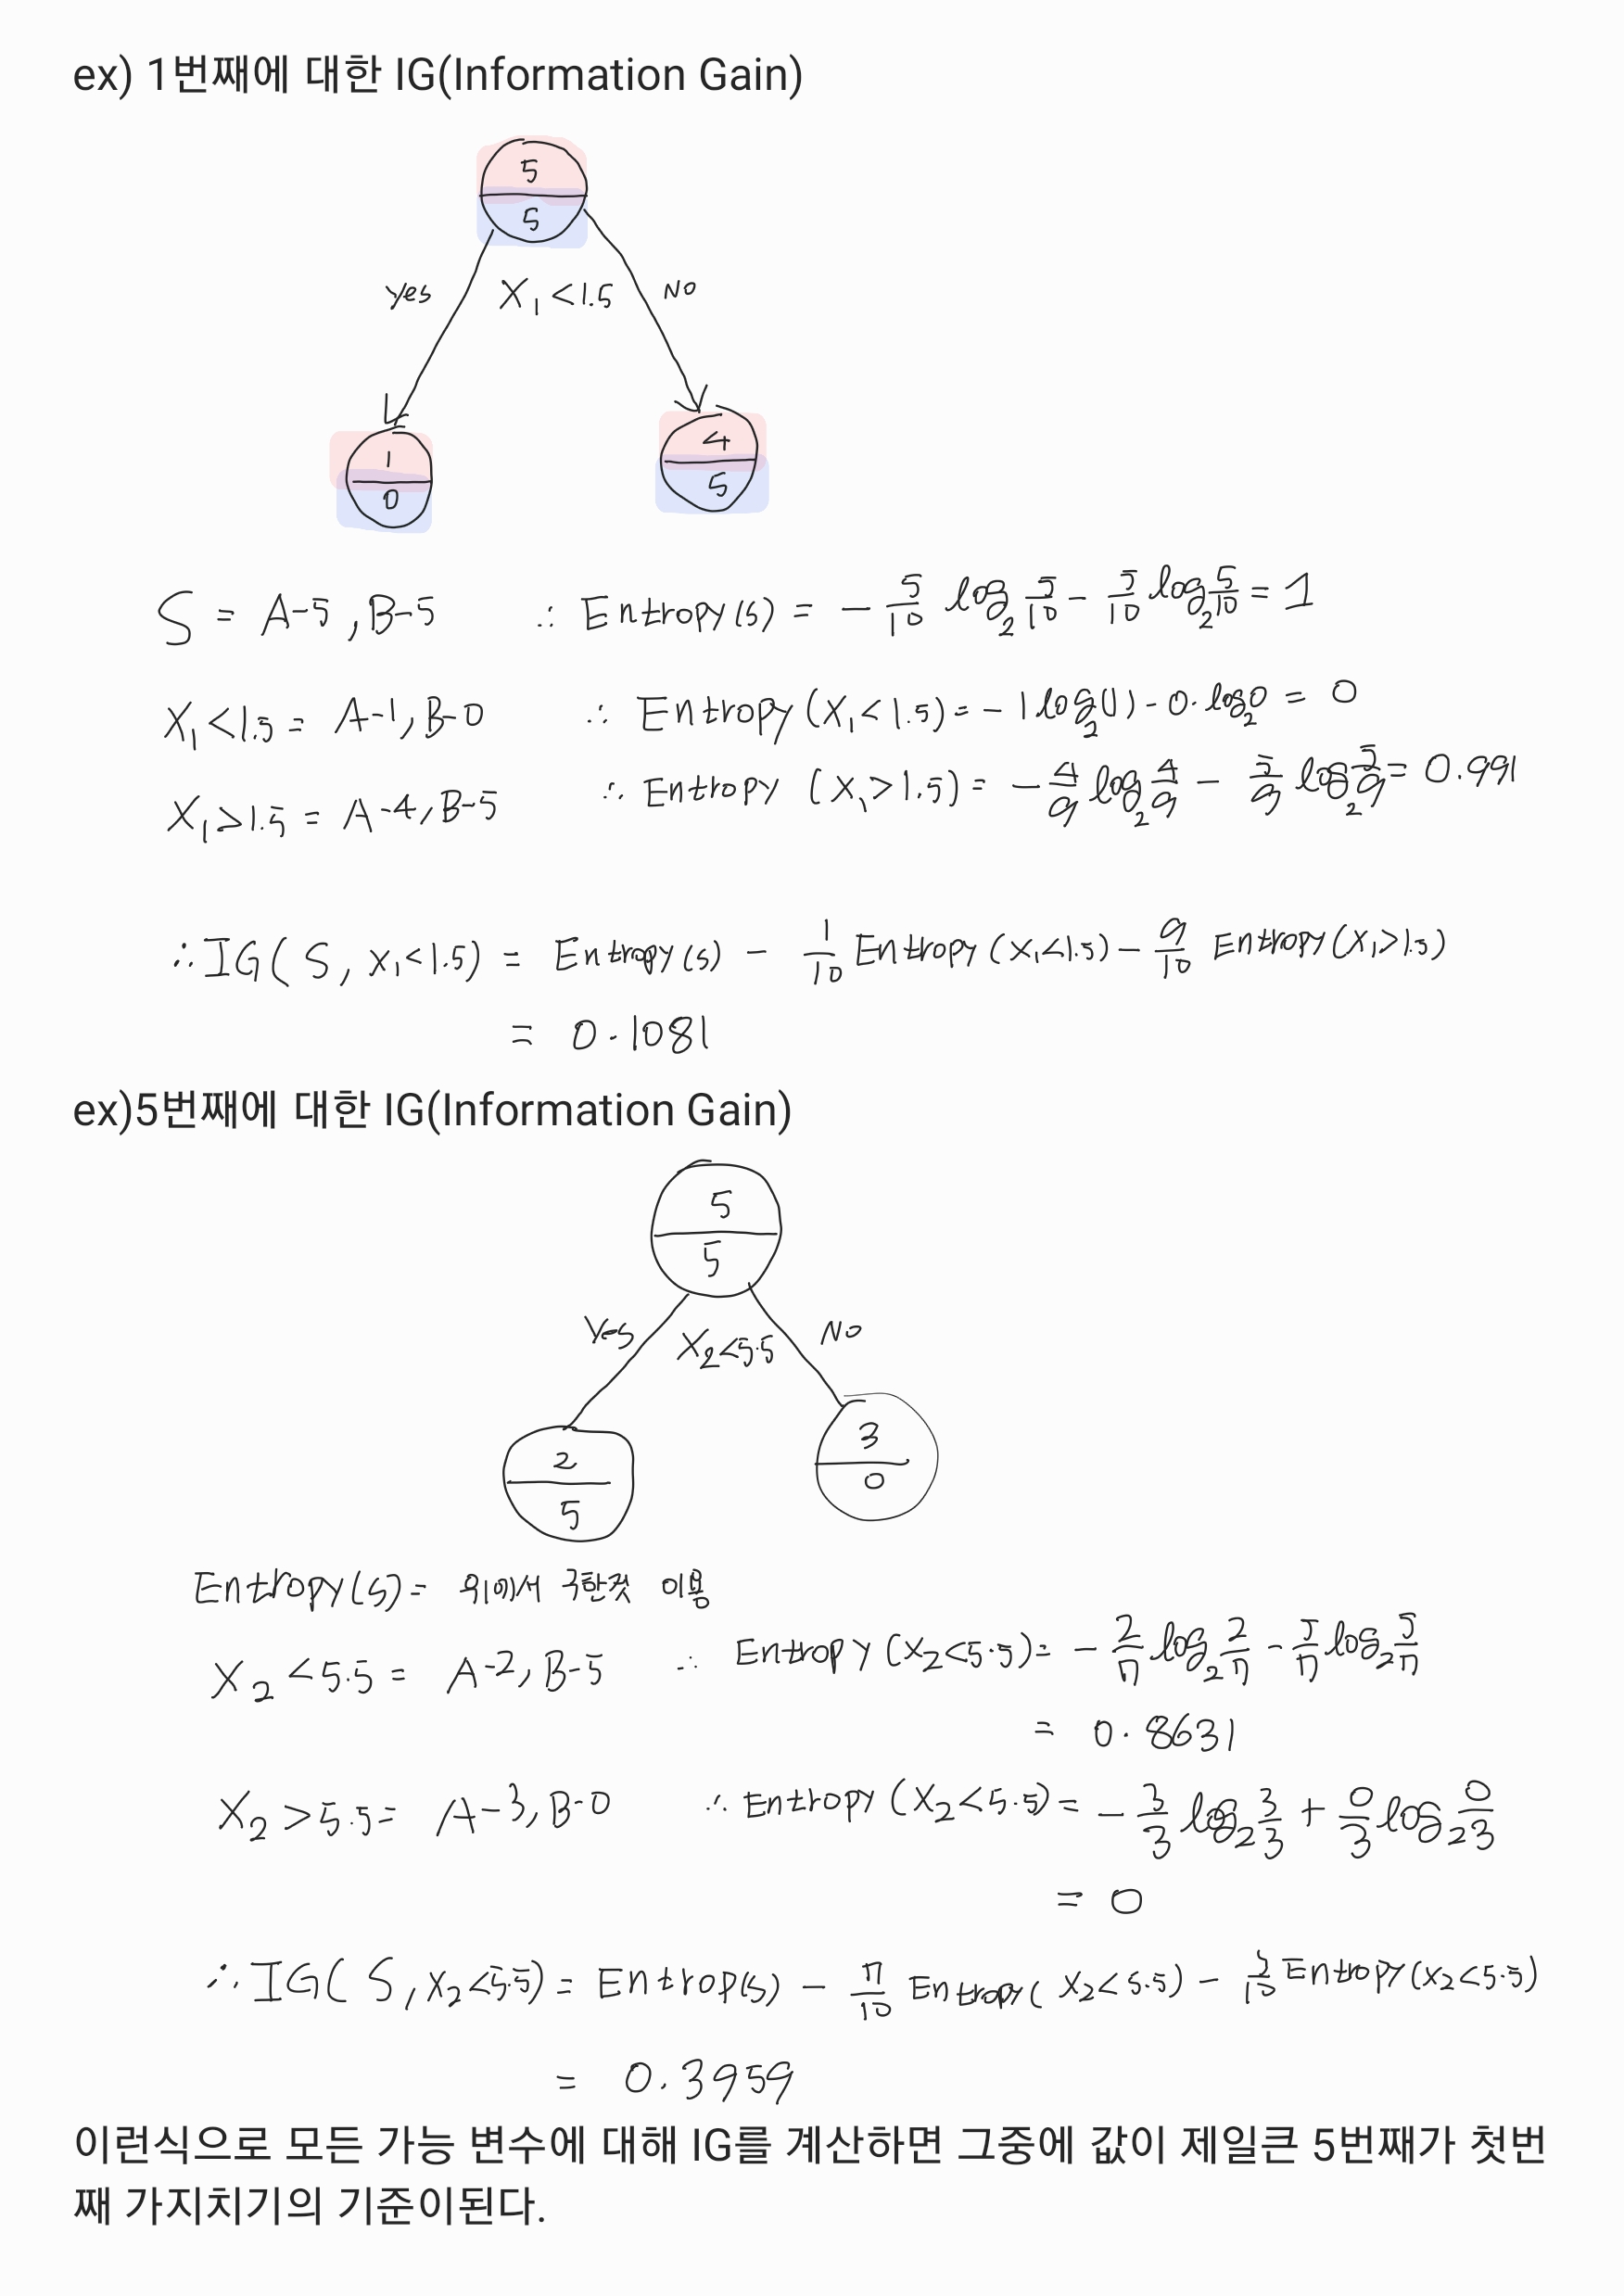 ex) 1번째에 대한 IG(Information Gain)
5
5
yes X₁<1.5 NO
1
0
4
5
S = A-5, B-5 ∴ Entropy(s) = - 5/10 log₂ 5/10 - 5/10 log₂ 5/10 = 1
X₁<1.5 = A-1, B-0 ∴ Entropy(X₁<1.5) = - 1log₂(1) - 0·log₂0 = 0
X₁>1.5 = A-4, B-5 ∴ Entropy (X₁>1.5) = - 4/9 log₂ 4/9 - 5/9 log₂ 5/9 = 0.991
∴ IG(S, x₁<1.5) = Entropy(s) - 1/10 Entropy(x₁<1.5) - 9/10 Entropy(X₁>1.5)
= 0.1081
ex)5번째에 대한 IG(Information Gain)
5
5
Yes X₂<5.5 NO
2
5
3
0
Entropy(s) = 위에서 구한것 이용
X₂<5.5 = A-2, B-5 ∴ Entropy(x₂<5.5) = - 2/7 log₂ 2/7 - 5/7 log₂ 5/7
= 0.8631
X₂>5.5 = A-3, B-0 ∴ Entropy(X₂<5.5) = - 3/3 log₂ 3/3 + 0/3 log₂ 0/3
= 0
∴ IG(S, x₂<5.5) = Entrop(s) - 7/10 Entropy(x₂<5.5) - 3/10 Entropy(x₂<5.5)
= 0.3959
이런식으로 모든 가능 변수에 대해 IG를 계산하면 그중에 값이 제일큰 5번째가 첫번
째 가지치기의 기준이된다.